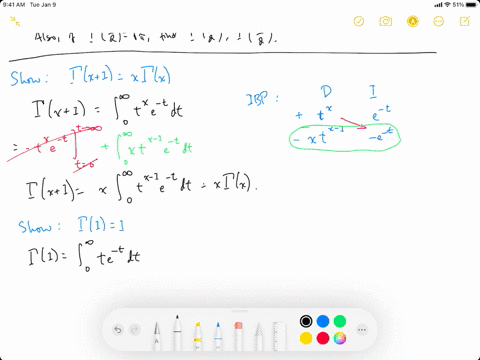 9:41 AM Tue Jan 9
51%
Show: Γ(x+1) = xΓ(x)
Γ(x+1) = ∫₀^∞ t^x e^{-t} dt
IBP: D I
+ t^x e^{-t}
- x t^{x-1} -e^{-t}
= -t^x e^{-t} ]_{t=0}^{t→∞} + ∫₀^∞ x t^{x-1} e^{-t} dt
Γ(x+1) = x ∫₀^∞ t^{x-1} e^{-t} dt = xΓ(x).
Show: Γ(1) = 1
Γ(1) = ∫₀^∞ t e^{-t} dt